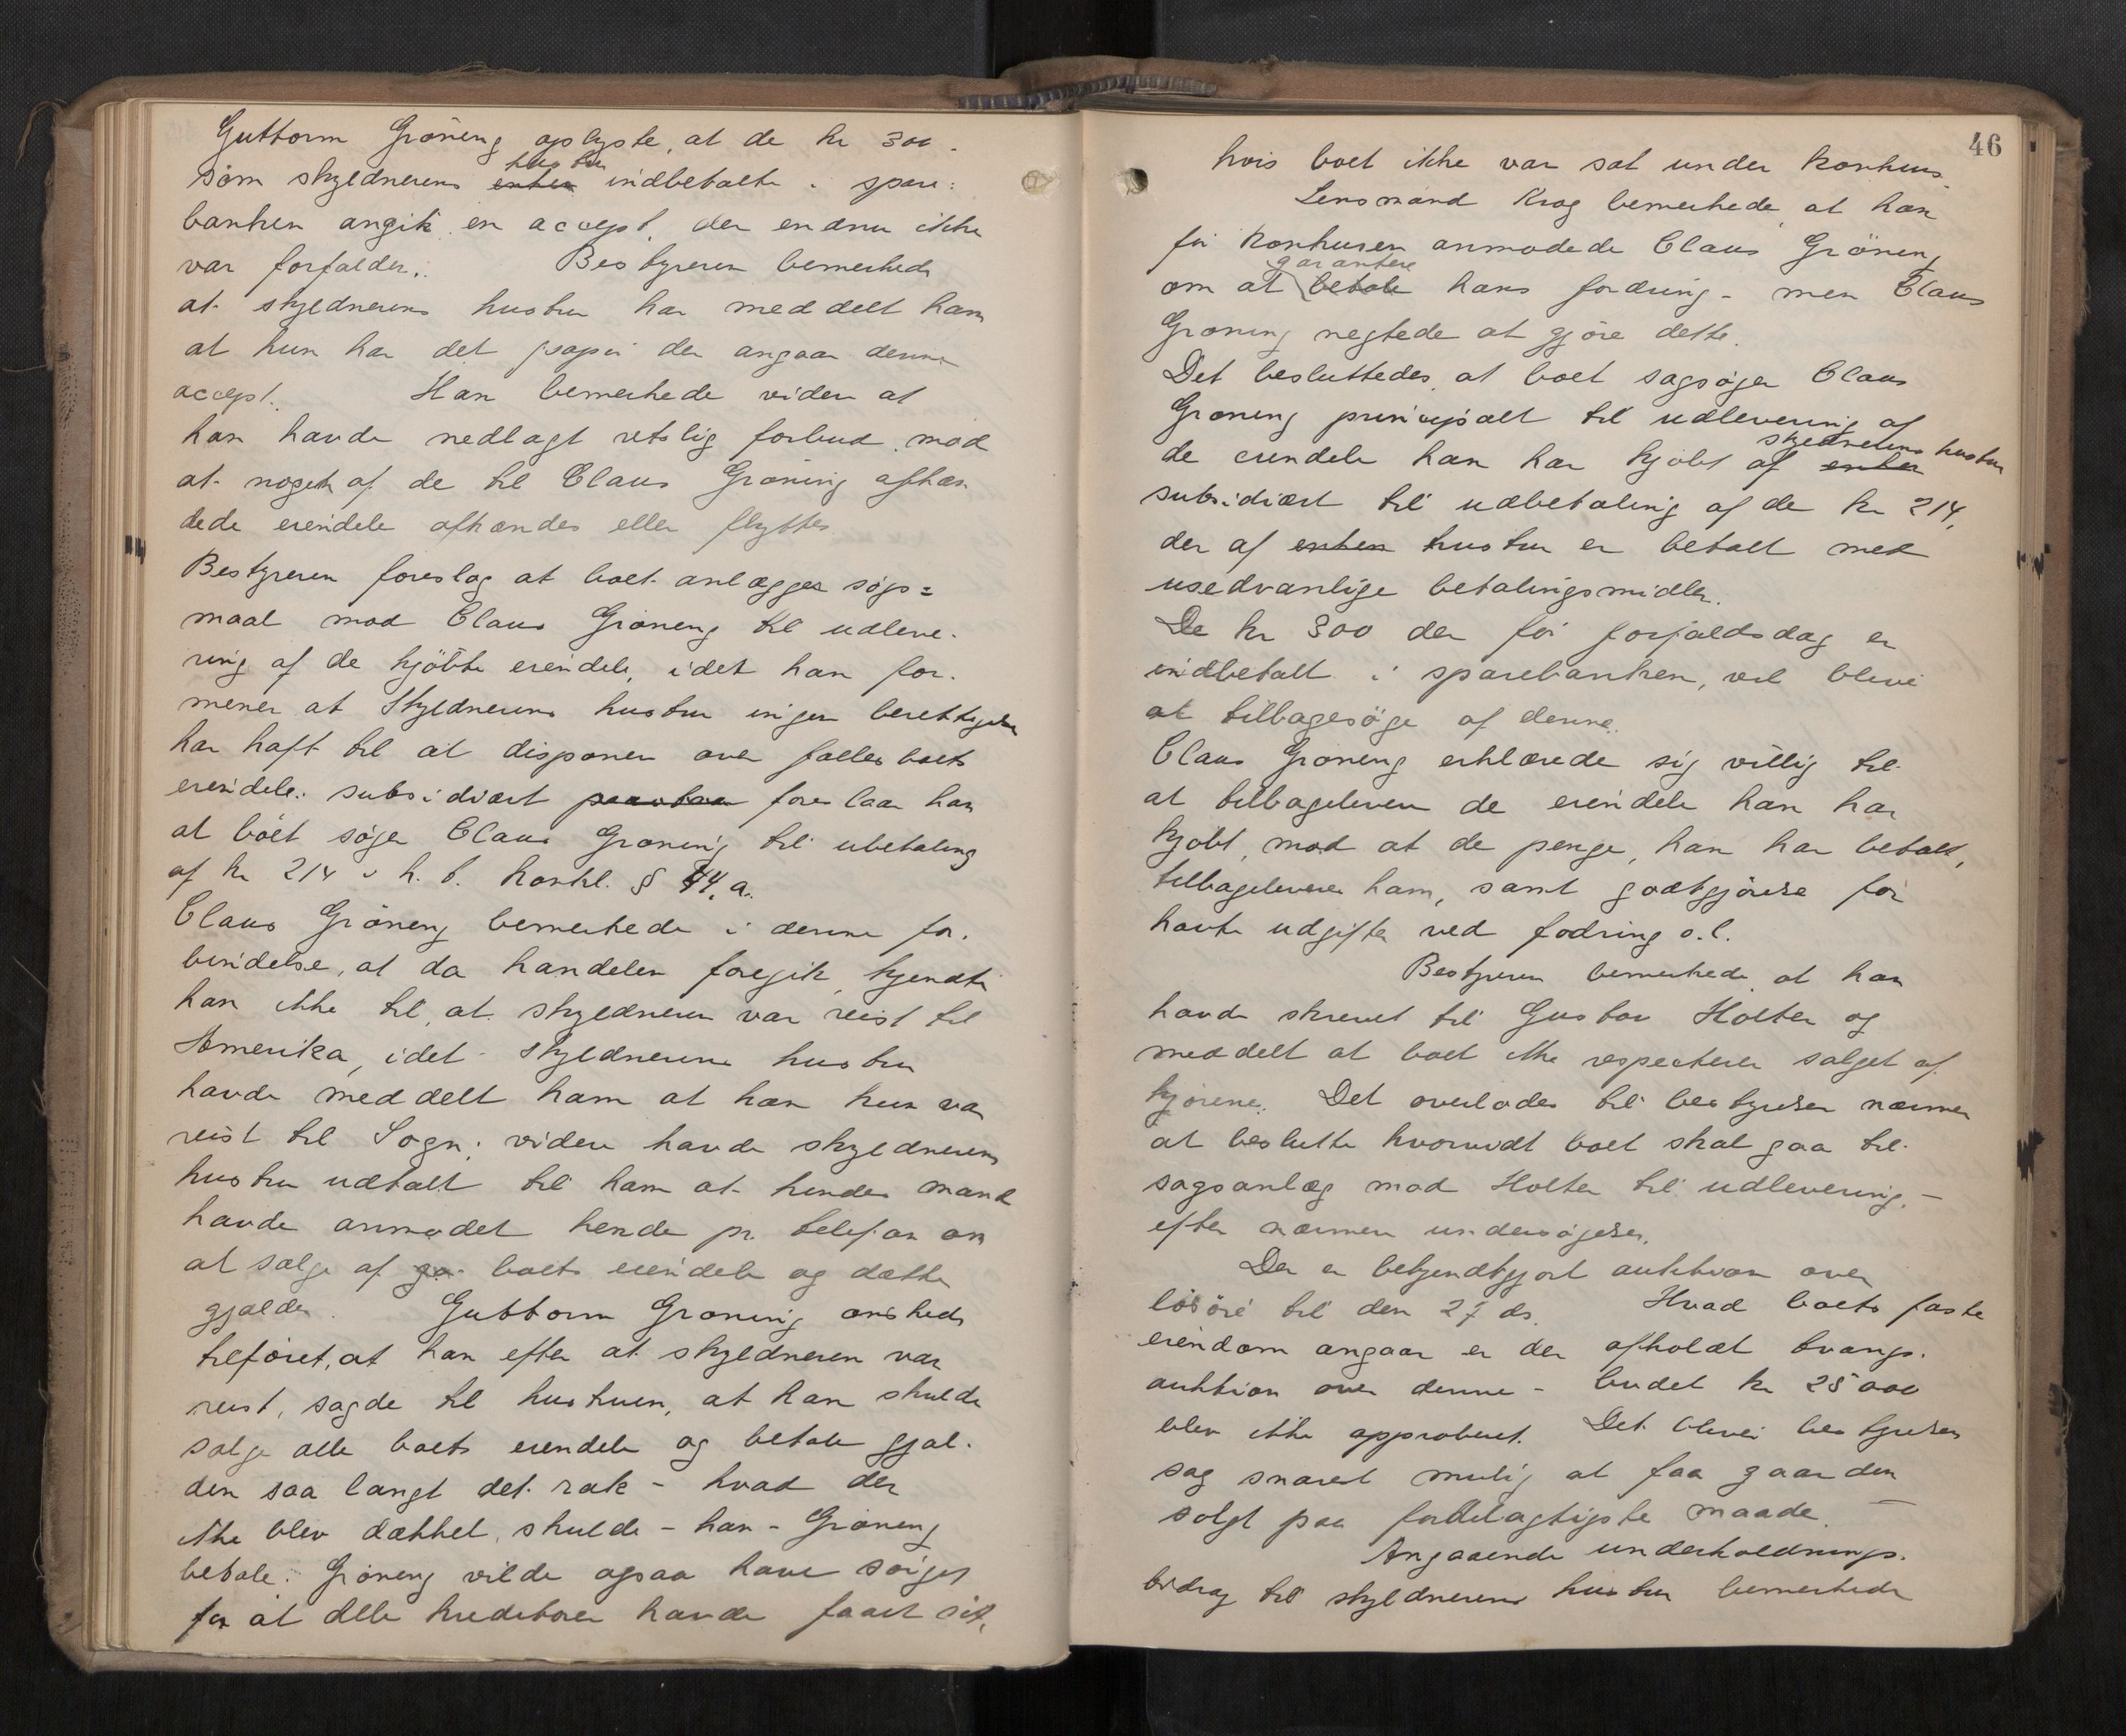 Guttorm Gröneng oplyste, at de kr 300.
som skyldnerens hustru indbetalte i spare:
banken angik en accept, der endnu ikke
var forfalden. Bestyreren bemerkede
at skyldnerens hustru har meddelt ham
at hun har det papir der angaar denne
accept. Han bemerkede videre at
han havde nedlagt retslig forbud mod
at noget af de til Claus Gröning afhæn
dede eiendele afhændes eller flyttes
Bestyreren foreslog at boet anlægger søgs=
maal mod Claus Gröneng til udleve-
ring af de kjöbte eiendele, idet han for-
mener at skyldnerens hustru ingen berettigelse
har haft til at disponere over fælles boets
eiendele. subsidiært foreslaar han
at boet søger Claus Gröning til ubetaling
af kr 214 h. t. konkl. § 44, a.
Claus Gröneng bemerkede i denne for-
bindelse, at da handelen foregik, kjendte
han ikke til, at skyldneren var reist til
Amerika, idet skyldnerens hustru
havde meddelt ham at han kun var
reist til Sogn; videre havde skyldnerens
hustru udtalt til ham at hendes mand
havde anmodet hende pr. telefon om
at sælge af boets eiendele og dække
gjælden. Guttorm Gröning ønskede
tilføiet, at han efter at skyldneren var
reist, sagde til hustruen, at han skulde
sælge alle boets eiendele og betale gjæl-
den saa langt det rak - hvad der
ikke blev dækket, skulde - han - Gröneng
betale. Gröneng vilde ogsaa have sörget
for at alle kreditorer havde faaet sit,
46
hvis boet ikke var sat under konkurs.
Lensmand Krog bemerkede, at han
før konkursen anmodede Claus Gröneng
om at garantere hans fordring - men Claus
Gröning negtede at gjöre dette.
Det besluttedes, at boet sagsøger Claus
Gröneng principalt til udlevering af
de eiendele han har kjøbt af skyldnerens hustru
subsidiært til udbetaling af de kr 214,
der af hustru er betalt med
usedvanlige betalingsmidler.
De kr 300 der før forfaldsdag er
indbetalt i sparebanken, vil blive
at tilbagesøge af denne.
Claus Gröneng erklærede sig villig til
at tilbagelevere de eiendele han har
kjøbt, mod at de penge, han har betalt,
tilbageleveres ham, samt godtgjørelse for
havte udgifter ved fodring o.l.
Bestyreren bemerkede, at han
havde skrevet til Gustav Holter og
meddelt at boet ikke respekterer salget af
kjørene. Det overlades til bestyrelsen nærmere
at beslutte hvorvidt boet skal gaa til
sagsanlæg mod Holter til udlevering, -
efter nærmere undersøgelser.
Der er bekjendtgjort auktion over
løsøre til den 27 ds. Hvad boets faste
eiendom angaar er der afholdt tvangs-
auktion over denne - budet kr 25000
blev ikke approberet. Det bliver bestyrelsens
sag snarest mulig at faa gaarden
solgt paa fordelagtigste maade. -
Angaaende underholdnings-
bidrag til skyldnerens hustru bemerkede